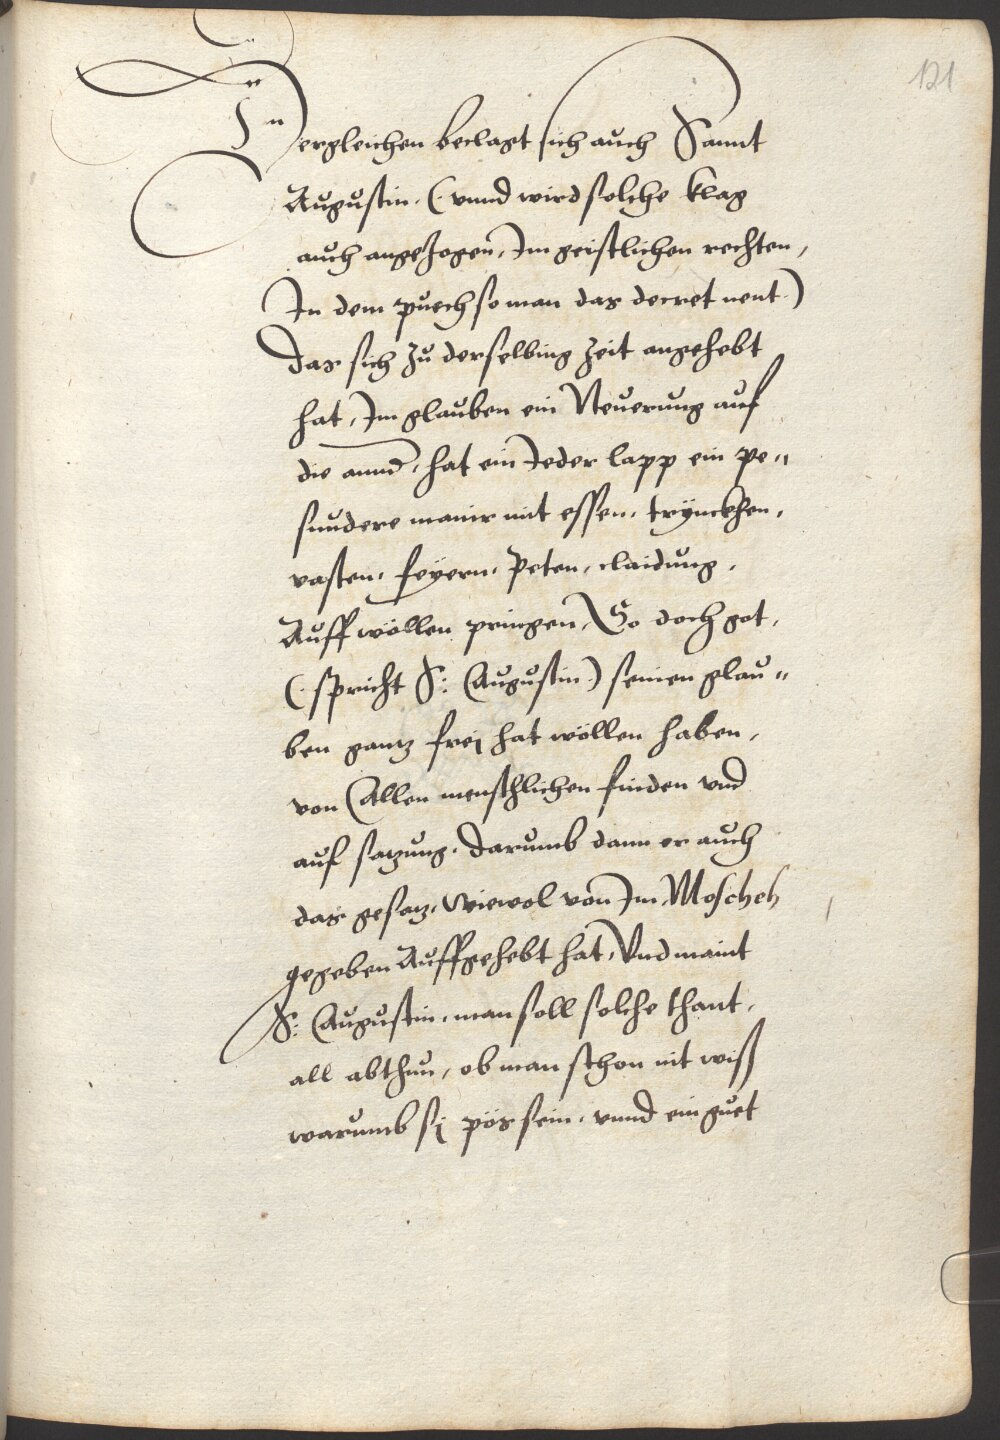 121
Dergleichen beclagt sich auch Sannt
Augustin. (vnnd wird solche klag
auch angeZogen, Im geistlichen rechten,
In dem puech so man das decret nent)
Das sich zu derselbing zeit angehebt
hat, Im glauben ein Neuerung auf
die annd, hat ein Jeder lapp ein pe„
sundere manir mit essen, trÿnckhen,
vasten, feÿern, Peten, claidung,
Auff wöllen pringen, So doch got,
(spricht S: Augustin) seinen glau„
ben gantz frej hat wöllen haben,
von Allen menschlichen finden vnd
auf satzung. Darumb dann er auch
das gesatz, wiewol von Im, Moscheh
gegeben Auffgehebt hat, Vnd maint
S: Augustin, man soll solche thant,
all abthun, ob man schon nit wiß
warumb sj pös sein, vnnd ein guet